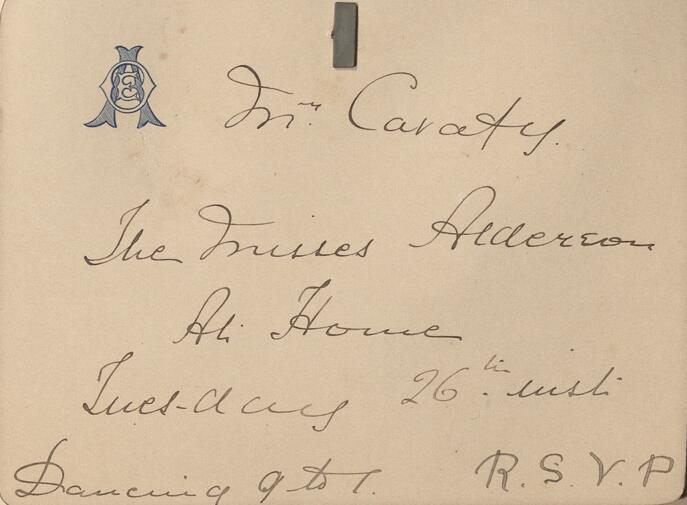 Mr. Cavafy.
The Misses Alderson
At Home
Tuesday 26th. inst.
Dancing 9 to 1.
R. S. V. P